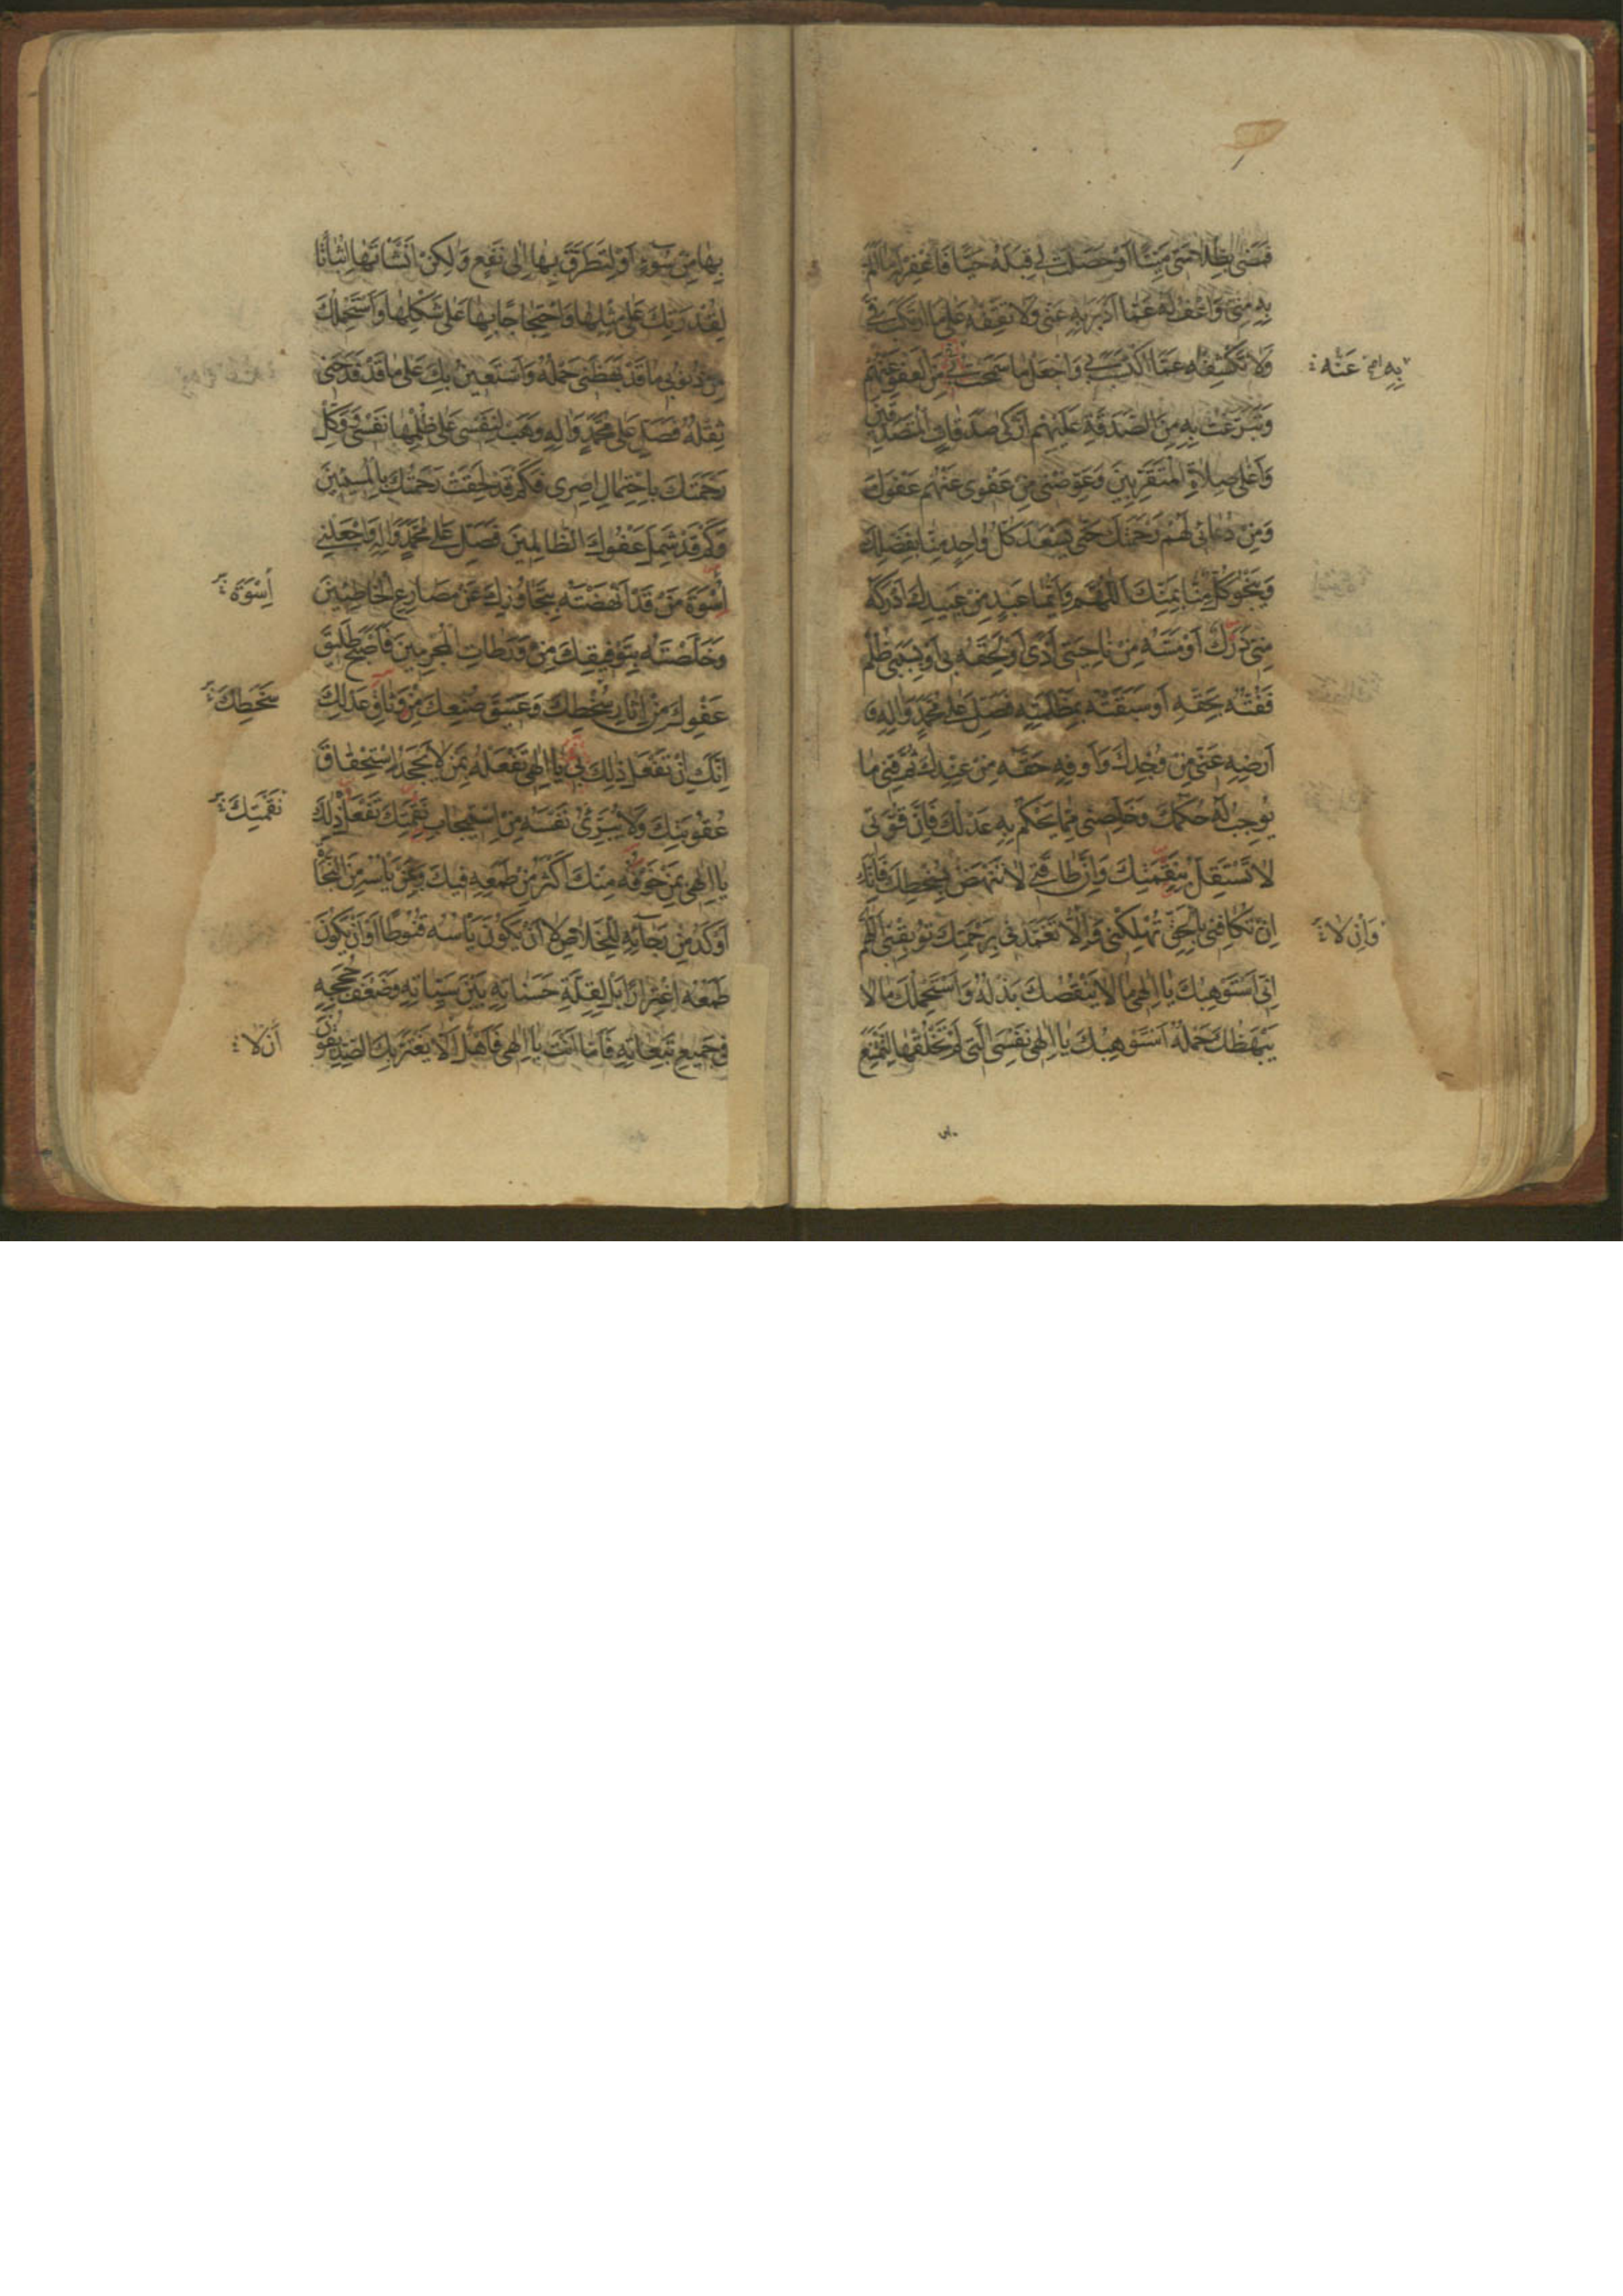 فَمَضٰى بِظُلَامَتِي مَيِّتًا أَوْ حَصَلَتْ لِي قِبَلَهُ حَيًّا فَاغْفِرْ لَهُ مَا أَلَمَّ
بِهِ مِنِّي وَاعْفُ لَهُ عَمَّا أَدْبَرَ بِهِ عَنِّي وَلَا تَقِفْهُ عَلٰى مَا ارْتَكَبَ فِيَّ
وَلَا تَكْشِفْهُ عَمَّا اكْتَسَبَ بِي وَاجْعَلْ مَا سَمَحْتُ بِهِ مِنَ الْعَفْوِ عَنْهُمْ
بِهِ عَنْهُ
وَتَبَرَّعْتُ بِهِ مِنَ الصَّدَقَةِ عَلَيْهِمْ أَزْكٰى صَدَقَاتِ الْمُتَصَدِّقِينَ
وَأَعْلٰى صِلَاةِ الْمُتَقَرِّبِينَ وَعَوِّضْنِي مِنْ عَفْوِي عَنْهُمْ عَفْوَكَ
وَمِنْ دُعَائِي لَهُمْ رَحْمَتَكَ حَتّٰى يَسْعَدَ كُلُّ وَاحِدٍ مِنَّا بِفَضْلِكَ
وَيَنْجُوَ كُلٌّ مِنَّا بِمَنِّكَ اَللّٰهُمَّ وَأَيُّمَا عَبْدٍ مِنْ عَبِيدِكَ أَدْرَكَهُ
مِنِّي دَرَكٌ أَوْ مَسَّهُ مِنْ نَاحِيَتِي أَذًى أَوْ لَحِقَهُ بِي أَوْ بِسَبَبِي ظُلْمٌ
فَفُتُّهُ بِحَقِّهِ أَوْ سَبَقْتُهُ بِمَظْلَمَتِهِ فَصَلِّ عَلٰى مُحَمَّدٍ وَآلِهِ وَ
أَرْضِهِ عَنِّي مِنْ وُجْدِكَ وَأَوْفِهِ حَقَّهُ مِنْ عِنْدِكَ ثُمَّ قِنِي مَا
يُوجِبُ لَهُ حُكْمُكَ وَخَلِّصْنِي مِمَّا يَحْكُمُ بِهِ عَدْلُكَ فَإِنَّ قُوَّتِي
لَا تَسْتَقِلُّ بِنَقِمَتِكَ وَإِنَّ طَاقَتِي لَا تَنْهَضُ بِسُخْطِكَ فَإِنَّكَ
إِنْ تُكَافِنِي بِالْحَقِّ تُهْلِكْنِي وَإِلَّا تَغَمَّدْنِي بِرَحْمَتِكَ تُوبِقْنِي اَللّٰهُمَّ
وَإِنْ لَا
إِنِّي أَسْتَوْهِبُكَ يَا إِلٰهِي مَا لَا يَنْقُصُكَ بَذْلُهُ وَأَسْتَحْمِلُكَ مَا لَا
يَبْهَظُكَ حَمْلُهُ أَسْتَوْهِبُكَ يَا إِلٰهِي نَفْسِيَ الَّتِي لَمْ تَخْلُقْهَا لِتَمْتَنِعَ
بِهَا مِنْ سُوءٍ أَوْ لِتَطَرَّقَ بِهَا إِلٰى نَفْعٍ وَلٰكِنْ أَنْشَأْتَهَا إِثْبَاتًا
لِقُدْرَتِكَ عَلٰى مِثْلِهَا وَاحْتِجَاجًا بِهَا عَلٰى شَكْلِهَا وَأَسْتَحْمِلُكَ
مِنْ ذُنُوبِي مَا قَدْ بَهَظَنِي حَمْلُهُ وَأَسْتَعِينُ بِكَ عَلٰى مَا قَدْ فَدَحَنِي
ثِقْلُهُ فَصَلِّ عَلٰى مُحَمَّدٍ وَآلِهِ وَهَبْ لِنَفْسِي عَلٰى ظُلْمِهَا نَفْسِي وَوَكِّلْ
رَحْمَتَكَ بِاحْتِمَالِ إِصْرِي فَكَمْ قَدْ لَحِقَتْ رَحْمَتُكَ بِالْمُسِيئِينَ
وَكَمْ قَدْ شَمِلَ عَفْوُكَ الظَّالِمِينَ فَصَلِّ عَلٰى مُحَمَّدٍ وَآلِهِ وَاجْعَلْنِي
أُسْوَةَ مَنْ قَدْ أَنْهَضْتَهُ بِتَجَاوُزِكَ عَنْ مَصَارِعِ الْخَاطِئِينَ
أُسْوَةَ
وَخَلَّصْتَهُ بِتَوْفِيقِكَ مِنْ وَرَطَاتِ الْمُجْرِمِينَ فَأَصْبَحَ طَلِيقَ
عَفْوِكَ مِنْ إِسَارِ سُخْطِكَ وَعَتِيقَ صُنْعِكَ مِنْ وَثَاقِ عَدْلِكَ
سَخَطِكَ
إِنَّكَ إِنْ تَفْعَلْ ذٰلِكَ بِي يَا إِلٰهِي تَفْعَلْهُ بِمَنْ لَا يَجْحَدُ اسْتِحْقَاقَ
عُقُوبَتِكَ وَلَا يُبَرِّئُ نَفْسَهُ مِنِ اسْتِيجَابِ نَقِمَتِكَ تَفْعَلْ ذٰلِكَ
نِقْمَتِكَ
يَا إِلٰهِي بِمَنْ خَوْفُهُ مِنْكَ أَكْثَرُ مِنْ طَمَعِهِ فِيكَ وَبِمَنْ يَأْسُهُ مِنَ النَّجَاةِ
أَوْكَدُ مِنْ رَجَائِهِ لِلْخَلَاصِ لَا أَنْ يَكُونَ يَأْسُهُ قُنُوطًا أَوْ أَنْ يَكُونَ
طَمَعُهُ اغْتِرَارًا بَلْ لِقِلَّةِ حَسَنَاتِهِ بَيْنَ سَيِّئَاتِهِ وَضَعْفِ حُجَجِهِ
فِي جَمِيعِ تَبِعَاتِهِ فَأَمَّا أَنْتَ يَا إِلٰهِي فَأَهْلٌ أَلَّا يَغْتَرَّ بِكَ الصِّدِّيقُونَ
أَنْ لَا